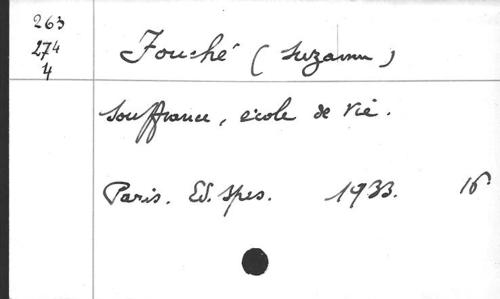 263
274
4
Fouché (Suzanne)
Souffrance, école de vie.
Paris. Ed. Spes. 1933. 16°